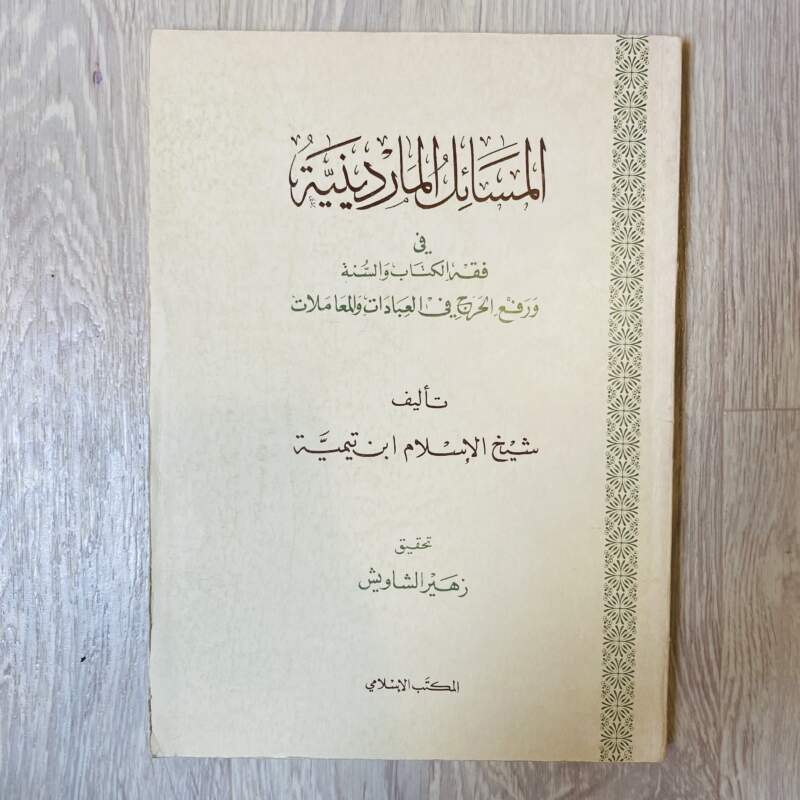 المسائل الماردينية
في
فقه الكتاب والسنة
ورفع الحرج في العبادات والمعاملات
تأليف
شيخ الإسلام ابن تيمية
تحقيق
زهير الشاويش
المكتب الإسلامي